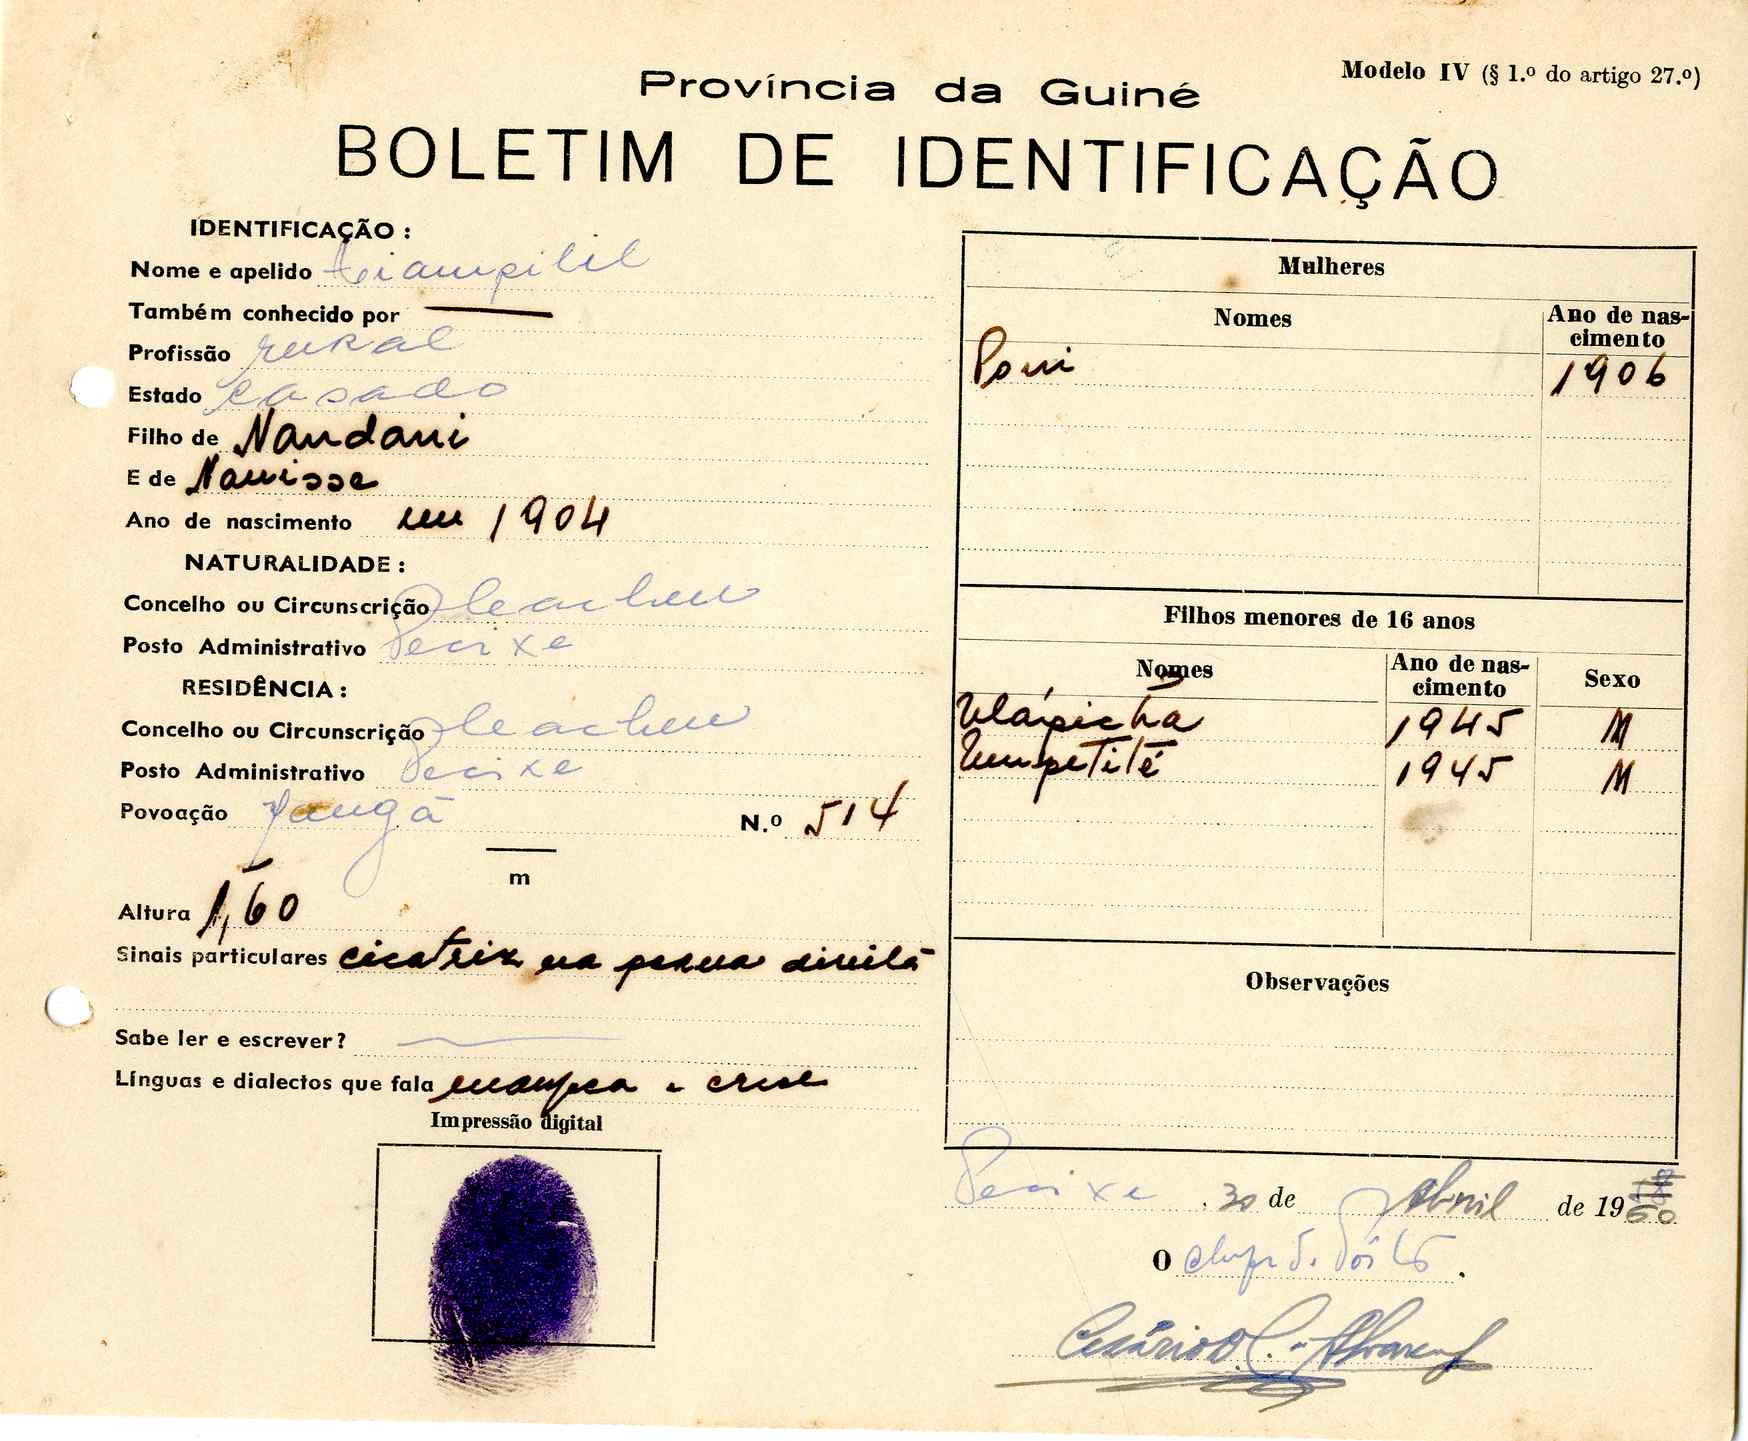 Modelo IV (§ 1.º do artigo 27.º)
Província da Guiné
BOLETIM DE IDENTIFICAÇÃO
IDENTIFICAÇÃO :
Nome e apelido
Também conhecido por
Profissão rural
Estado casado
Filho de Nandani
E de Nauisse
Ano de nascimento em 1904
NATURALIDADE :
Concelho ou Circunscrição
Posto Administrativo Pecixe
RESIDÊNCIA :
Concelho ou Circunscrição
Posto Administrativo Pecixe
Povoação
N.º 514
m
Altura 1,60
Sinais particulares cicatriz na perna direita
Sabe ler e escrever?
Línguas e dialectos que fala
Impressão digital
Mulheres
Nomes Ano de nas-
cimento
1906
Filhos menores de 16 anos
Nomes Ano de nas-
cimento Sexo
1945 M
1945 M
Observações
Pecixe, 30 de Abril de 1960
O